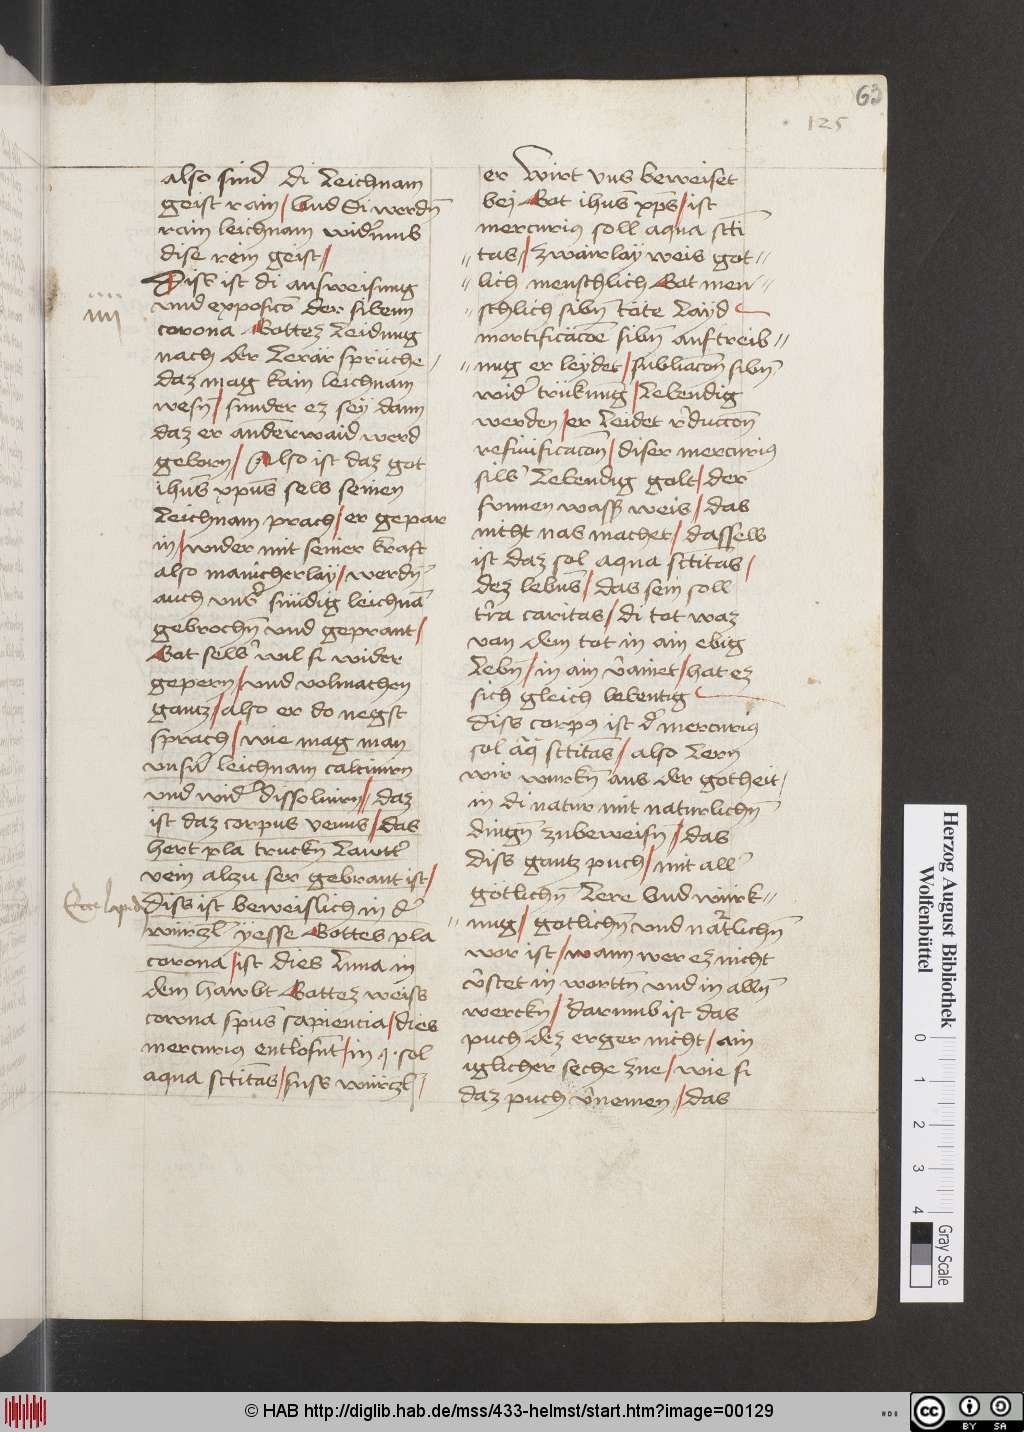 63
125
also sind di Leichnam
geist rain / Und Si werdn̄
rain leichnam widerumb
dise rein geist /
Diss ist di ausweisung
und exposicō der siben
corona Gottez Leidung
nach der Lerär sprüche
daz mag kain leichnam
wesn̄ / sunder ez sey dann
daz er anderwaid werd
geborn / Also ist daz got
ihūs xp̄us selb seinen
Leichnam prach / er gepar
in / wider mit seiner kraft
also manicherlay / werdn̄
auch uns̄ sündig leichnā
gebrochn̄ und geprant /
Got selb wil si wider
gepern / und volmachen
gantz / also er do negst
sprach / wie mag man
unsir leichnam calcinirn
und wid dissoluirn // daz
ist daz corpus venus / das
hert pla truckn̄ Lawtt
vein alzu ser gebrant ist /
Ecce lapid
Diss ist beweislich in d
würczl yesse Gottes pla
corona / ist dies Luna in
dem hawbt Gottez weiss
corona spūs sapiencia / dies
mercurius entlosn̄t / in q. sol
aqua sctitas / suss würczl /
er wirt uns beweiset
bey Got ihūs xp̄s / ist
mercurius soll aqua scti
tas / zwairlay weis got
lich menschlich Got men
schlich sibn̄ töte Layd
mortificacōe sibn̄ auftreib
ung er leydet / sublīacōn sibn̄
wid trückung / Lebendig
werden / er Leidet rducciōn
refiuificacōn / diser mercurius
silb Lebendig golt / der
sunnen wass weis / das
nicht nas machet / dasselb
ist daz sol aqua sctitas /
dez lebns / das sein soll
trra caritas / di tot waz
van dem tot in ain ebig
Lebn̄ / in ain vainet / hat ez
sich gleich lebentig
diss corpus ist d mercurius
sol aq sctitas / also Lern
wir wurkn̄ aus der gotheit /
in di natur mit naturlichn̄
dingn̄ zubeweisn̄ / das
diss gantz puch / mit all
gotlichn̄ Lere Und würk
ung / gotlichn̄ und nātlichn̄
wor ist / wann wer ez nicht
vstet in wortn̄ und in alln̄
werckn̄ / darumb ist das
puch dez erger nicht / ain
iglicher seche zue / wie si
daz puch vnemen // das
Herzog August Bibliothek
Wolfenbüttel
0 1 2 3 4
Gray Scale
© HAB http://diglib.hab.de/mss/433-helmst/start.htm?image=00129
cc BY SA